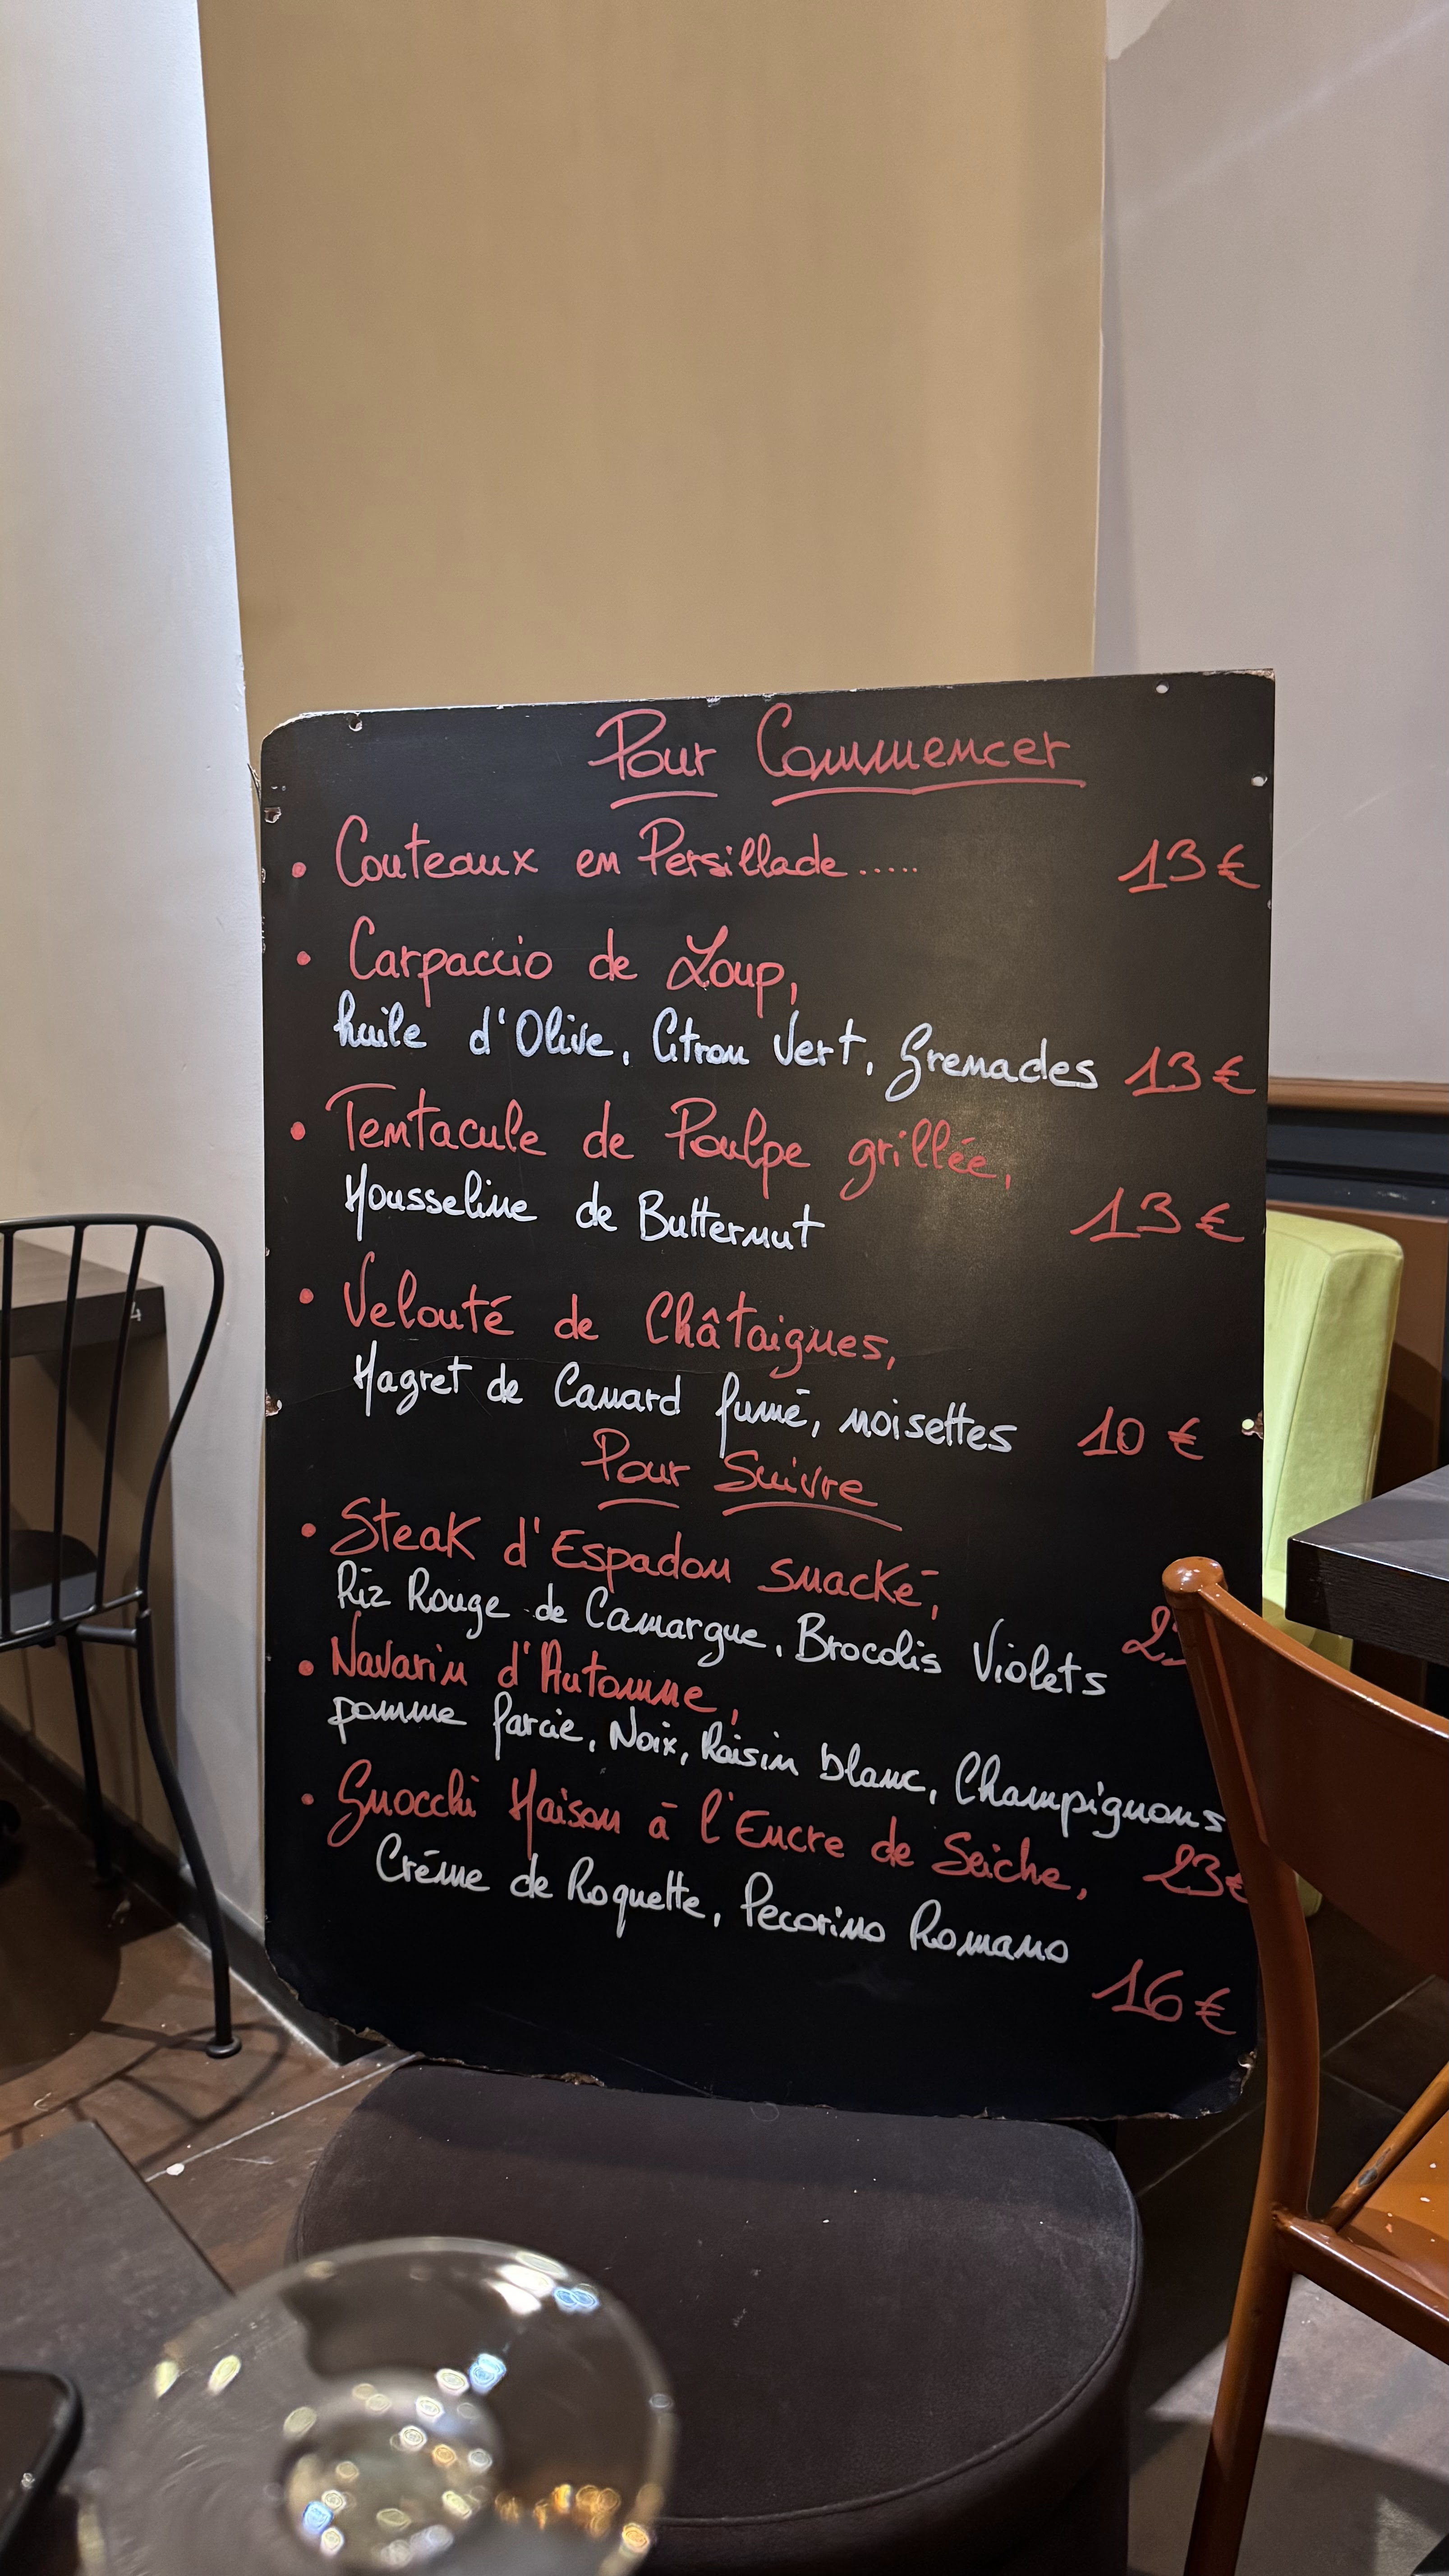 Pour Commencer
• Couteaux en Persillade ..... 13 €
• Carpaccio de Loup,
huile d'Olive, Citron Vert, Grenades 13 €
• Tentacule de Poulpe grillée,
Mousseline de Butternut 13 €
• Velouté de Châtaignes,
Magret de Canard fumé, noisettes 10 €
Pour Suivre
• Steak d'Espadon snacké,
Riz Rouge de Camargue, Brocolis Violets
• Navarin d'Automne,
pomme farcie, Noix, Raisin blanc, Champignons
23€
• Gnocchi Maison à l'Encre de Seiche,
Crème de Roquette, Pecorino Romano
16 €
4